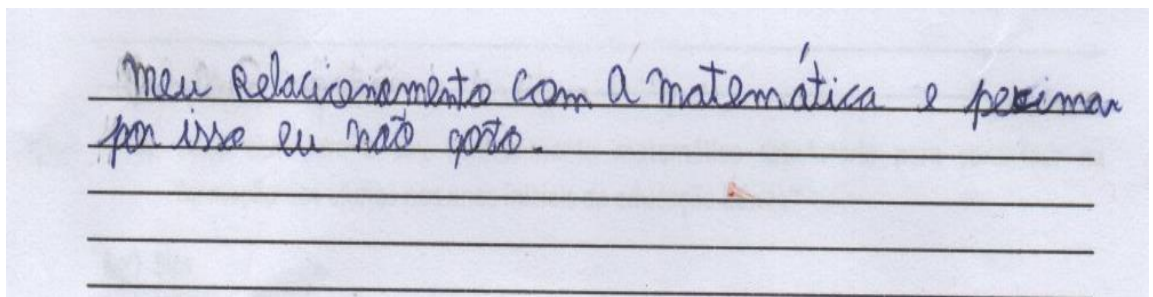 Meu relacionamento com a matemática e pescimar
por isso eu não gosto.